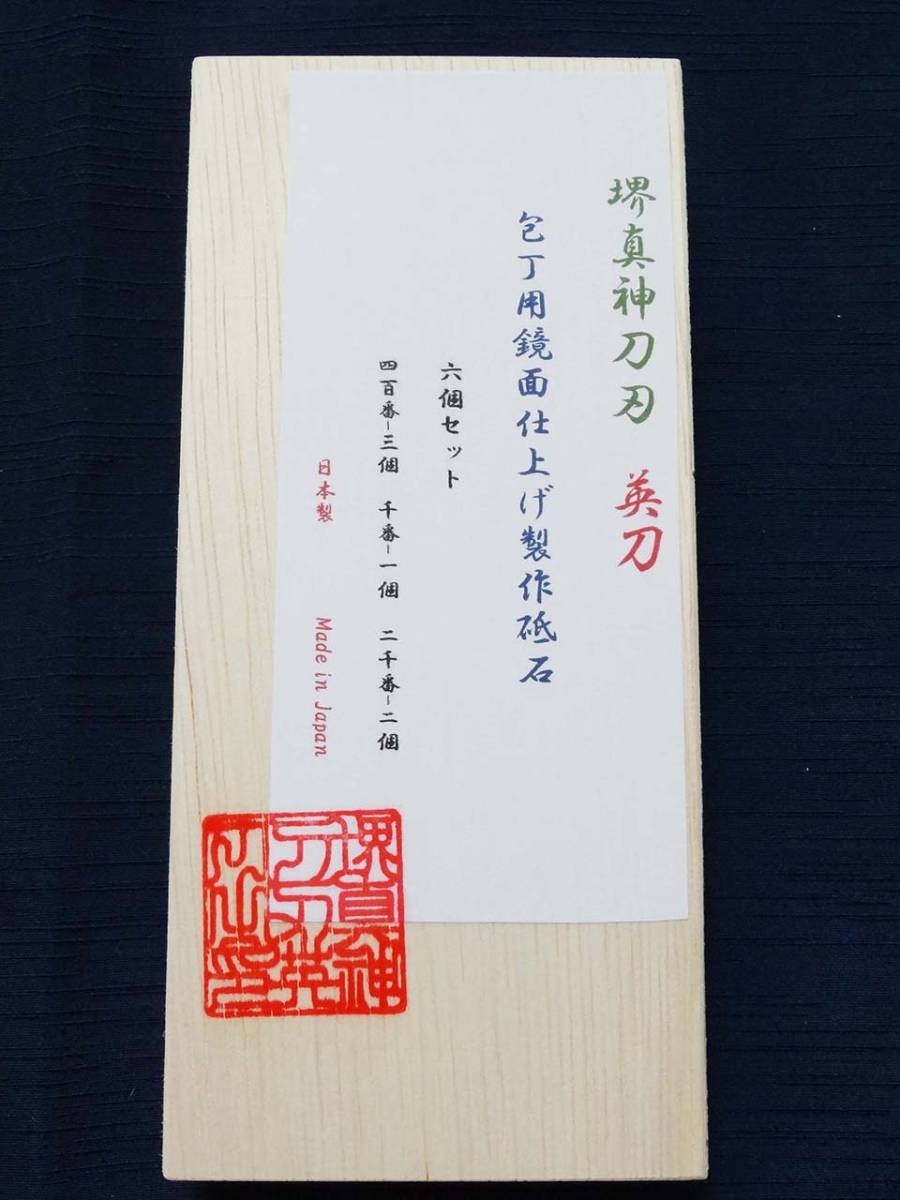 堺真神刀刃 英刀
包丁用鏡面仕上げ製作砥石
六個セット
四百番-三個 千番-一個 二千番-二個
日本製 Made in Japan
堺真神
刀刃英
刀之印